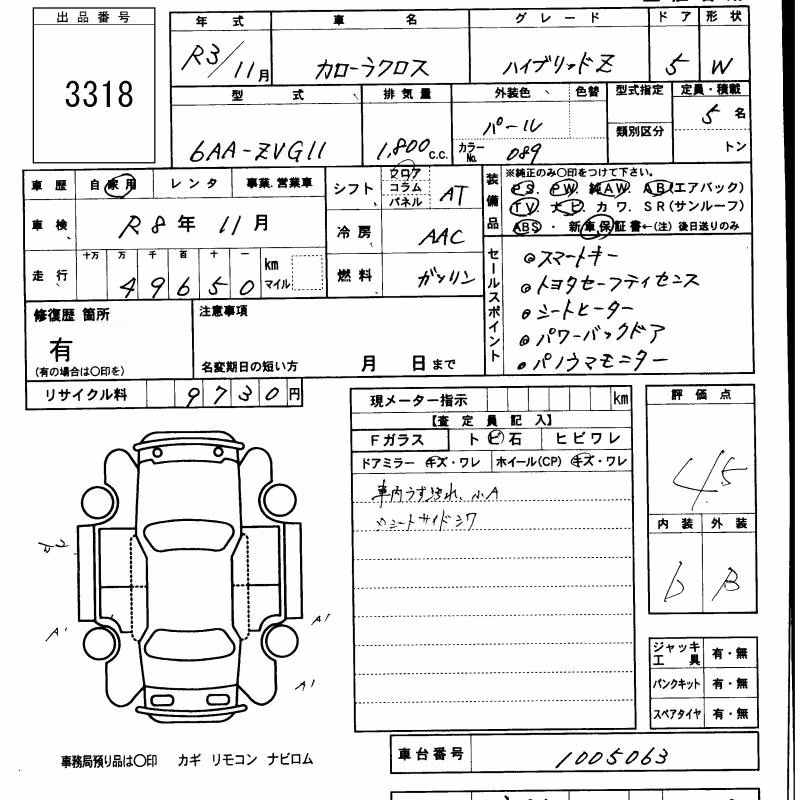 出品番号
3318
年式 車名 グレード ドア 形状
R3/11月 カローラクロス ハイブリッドZ 5 W
型式 排気量 外装色 色替 型式指定 定員・積載
6AA-ZVG11 1,800 c.c. パール カラーNo. 089 類別区分 5名
トン
車歴 自家用 レンタ 事業.営業車 シフト フロア コラム パネル AT
車検 R8年11月 冷房 AAC
走行 十万 万 千 百 十 一 km マイル 燃料 ガソリン
4 9 6 5 0
装備品 ※純正のみ〇印をつけて下さい。
PS. PW. 純AW. AB(エアバック)
TV. ナビ. カワ. SR(サンルーフ)
ABS・ 新車保証書←(注)後日送りのみ
セールスポイント
◎スマートキー
◎トヨタセーフティセンス
◎シートヒーター
◎パワーバックドア
◎パノラマモニター
修復歴 箇所 注意事項
有
(有の場合は〇印を) 名変期日の短い方 月 日まで
リサイクル料 9730円
現メーター指示 km
【査定員記入】
Fガラス トビ石 ヒビワレ
ドアミラー キズ・ワレ ホイール(CP) キズ・ワレ
車内うす汚れ、小A
シートサイドシワ
評価点
4.5
内装 外装
b B
A' A'
A'
ジャッキ工具 有・無
パンクキット 有・無
スペアタイヤ 有・無
事務局預り品は〇印 カギ リモコン ナビロム
車台番号 1005063